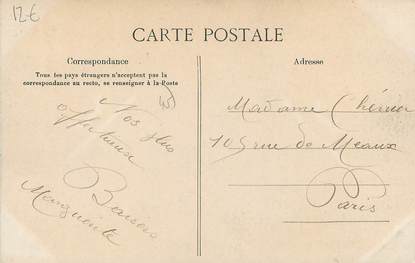 12 €
CARTE POSTALE
Correspondance
Tous les pays étrangers n'acceptent pas la
correspondance au recto, se renseigner à la Poste
Nos plus
affectueux
Baisers
Marguerite
Adresse
Madame
105 rue de Meaux
Paris